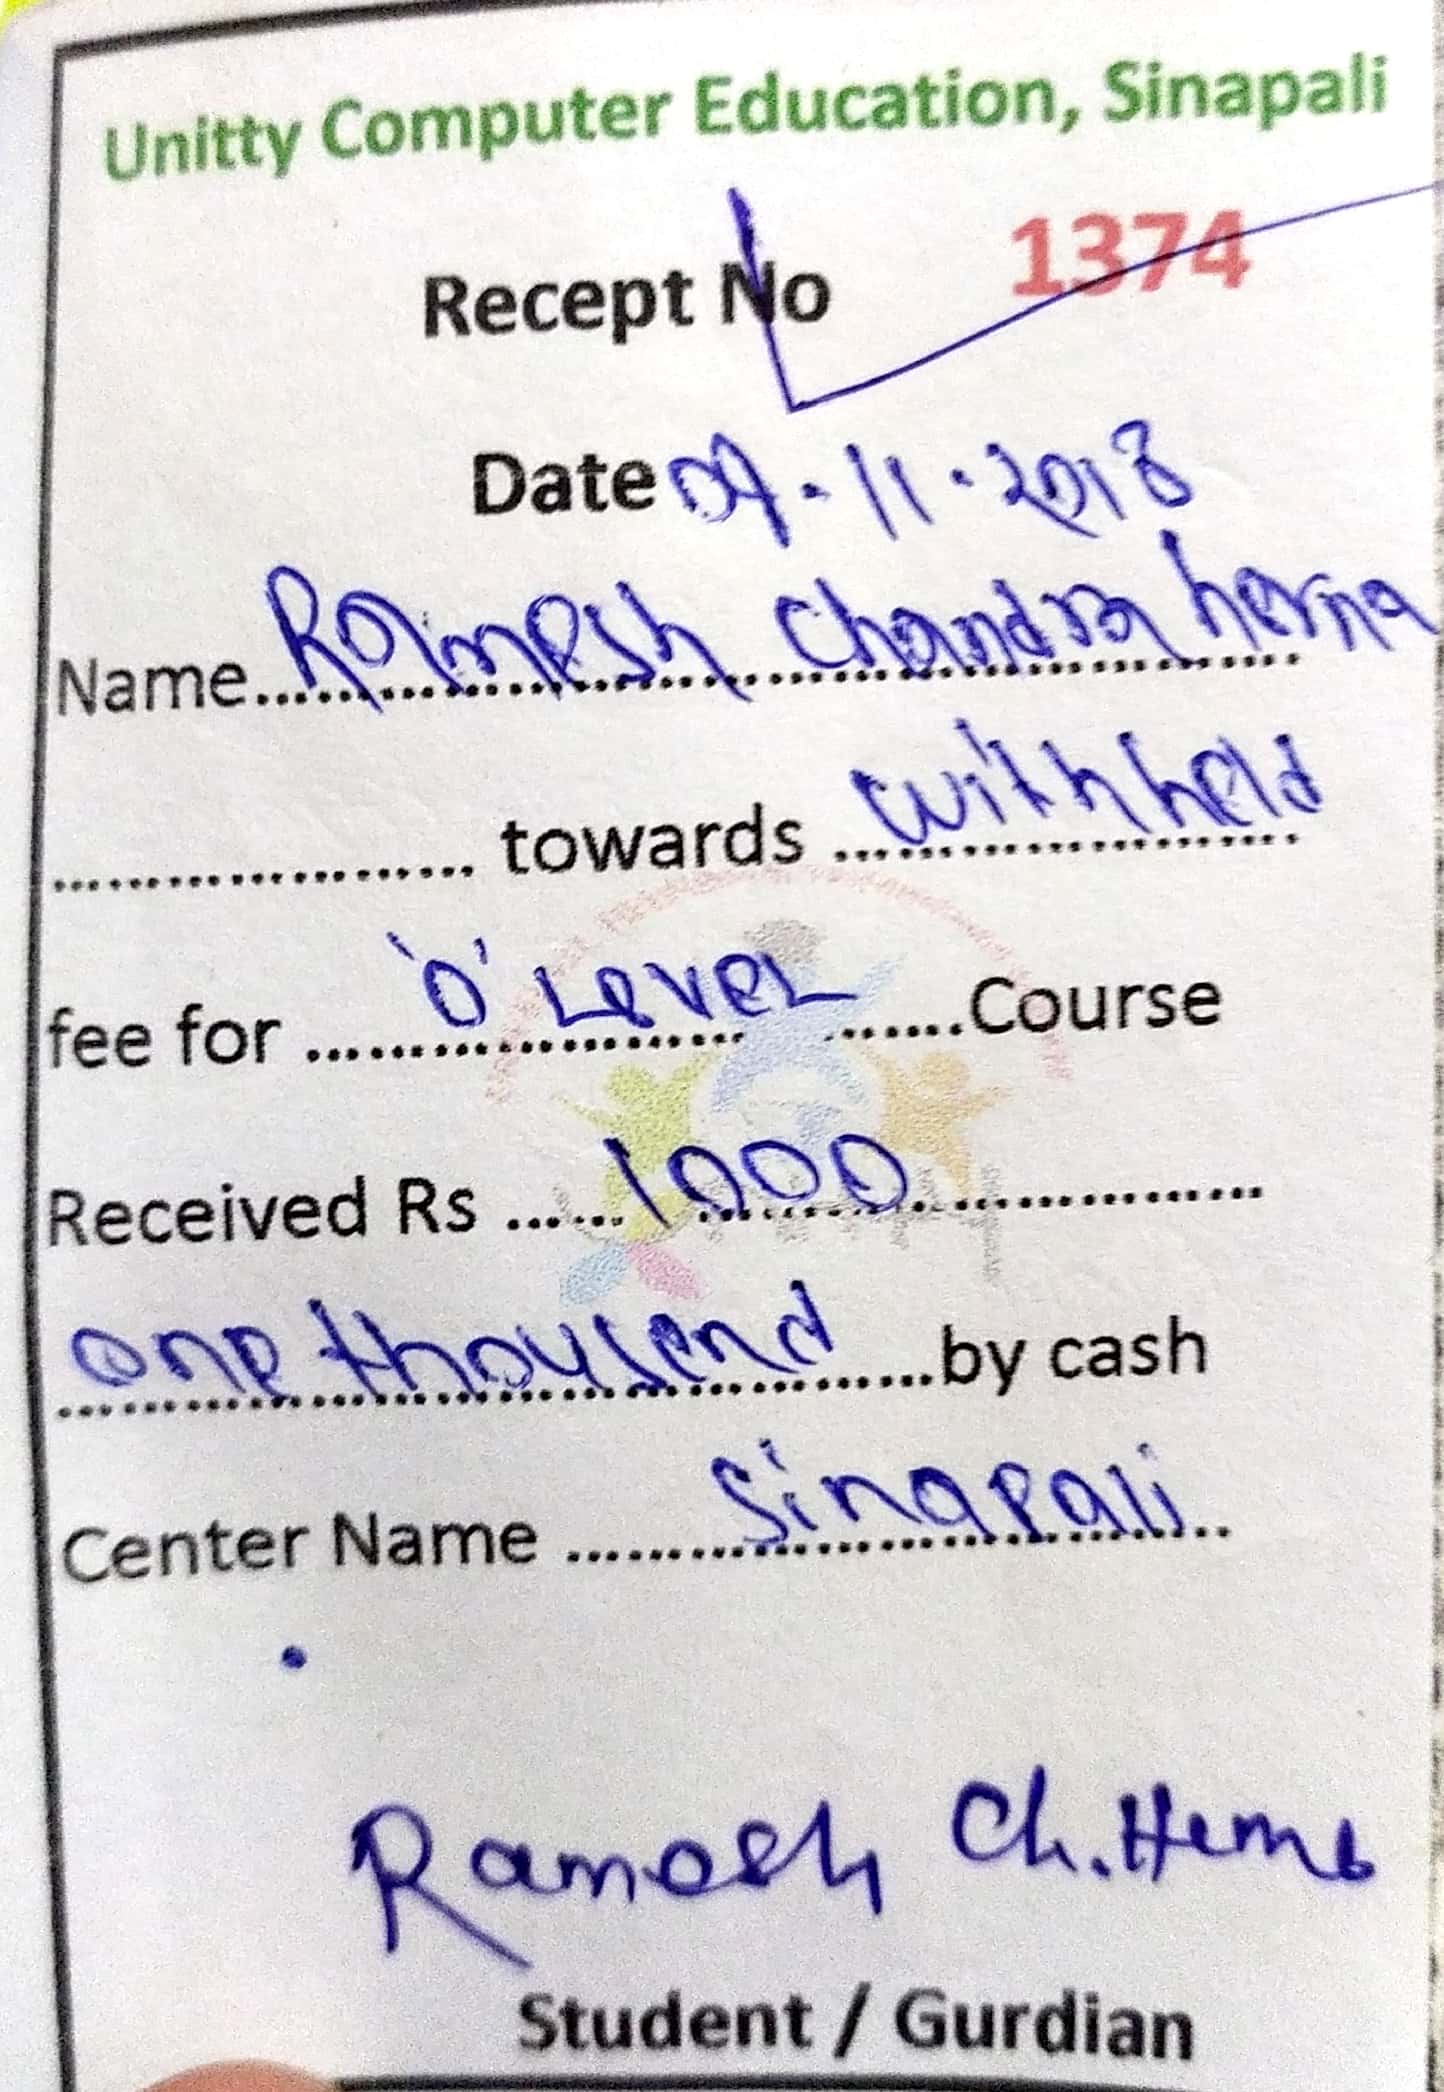 Unitty Computer Education, Sinapali
Recept No 1374
Date 09.11.2018
Name Ramesh Chandra hema
towards withheld
fee for 'O' Level Course
Received Rs 1000
one thousend by cash
Center Name Sinapali
Ramesh Ch. Hema
Student / Gurdian